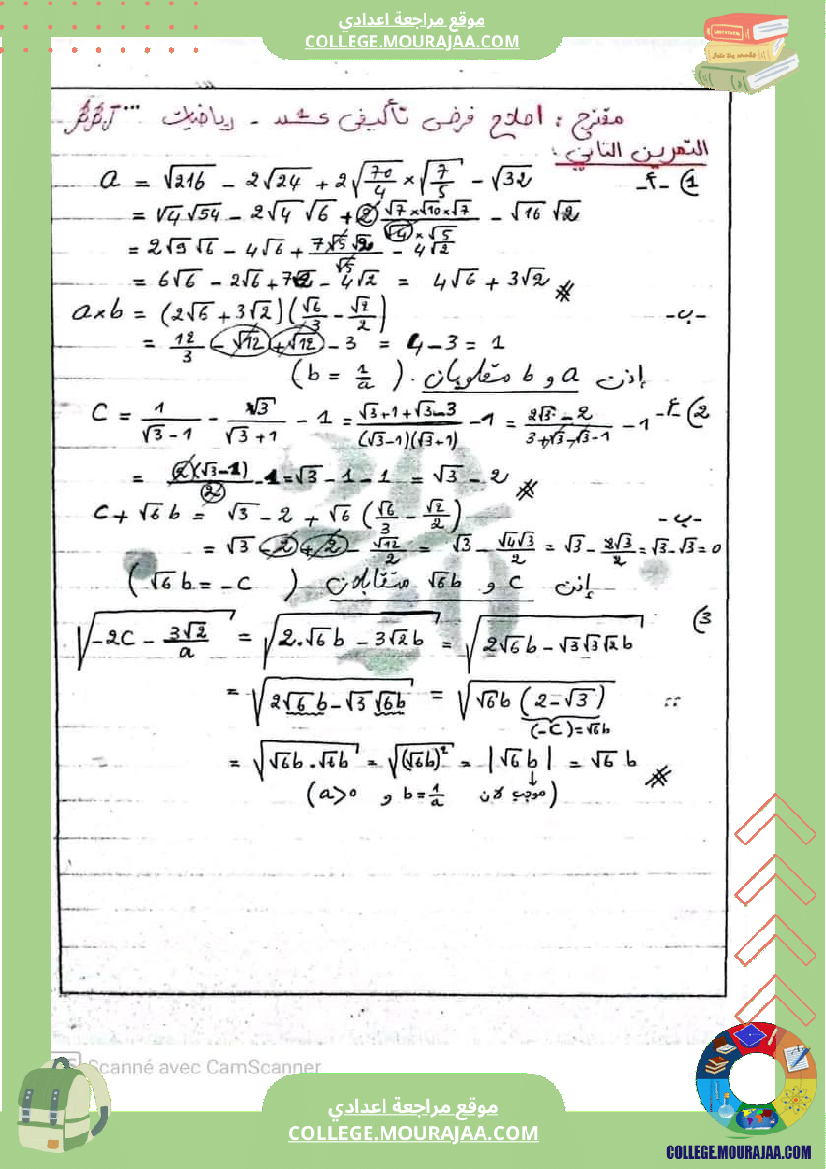 موقع مراجعة اعدادي
COLLEGE.MOURAJAA.COM
مقترح : اصلاح فرض تأليفي عـ3ـدد - رياضيات ...
التمرين الثاني :
1) -أ- a = √216 - 2√24 + 2√(70/4) × √(7/5) - √32
= √4 √54 - 2√4 √6 + 2 (√7×√10×√7)/(√4 × √5) - √16 √2
= 2√9 √6 - 4√6 + (7√5 √2)/√5 - 4√2
= 6√6 - 2√6 + 7√2 - 4√2 = 4√6 + 3√2 #
-ب- a×b = (2√6 + 3√2)(√6/3 - √2/2)
= 12/3 - √12 + √12 - 3 = 4 - 3 = 1
إذن a و b مقلوبان . (b = 1/a)
2) -أ- C = 1/(√3 - 1) - √3/(√3 + 1) - 1 = (√3+1+√3-3)/((√3-1)(√3+1)) - 1 = (2√3 - 2)/(3+√3-√3-1) - 1
= 2(√3-1)/2 - 1 = √3 - 1 - 1 = √3 - 2 #
-ب- C + √6 b = √3 - 2 + √6 (√6/3 - √2/2)
= √3 - 2 + 2 - √12/2 = √3 - √4√3/2 = √3 - 2√3/2 = √3 - √3 = 0
إذن C و √6 b متقابلان (√6 b = -C)
3) √(-2C - 3√2/a) = √(2.√6 b - 3√2 b) = √(2√6 b - √3√3√2 b)
= √(2√6 b - √3 √6b) = √(√6 b (2 - √3))
(-C) = √6 b
= √(√6b . √6b) = √((√6b)²) = |√6 b| = √6 b #
(موجب لان b = 1/a و a>0)
Scanné avec CamScanner
موقع مراجعة اعدادي
COLLEGE.MOURAJAA.COM
COLLEGE.MOURAJAA.COM